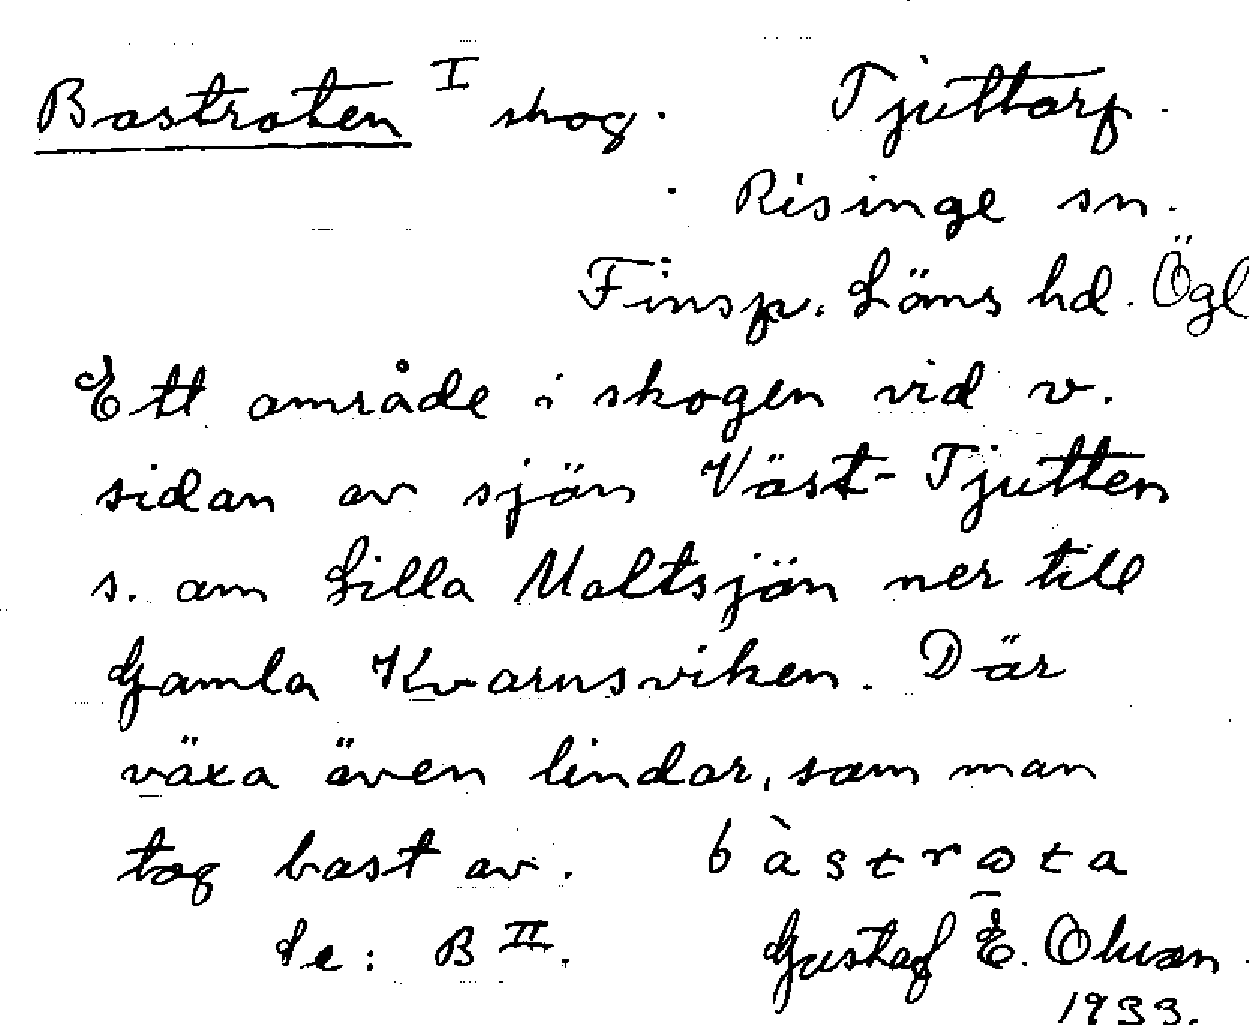 Bastroten I skog. Tjuttorp.
Risinge sn.
Finsp. Läns hd. Ögl
Ett område i skogen vid v.
sidan av sjön Väst-Tjutten
s. om Lilla Maltsjön ner till
Gamla Kvarnsviken. Där
växa även lindar, som man
tog bast av. bàstrota
Se: B II. Gustaf E. Olsson
1933.